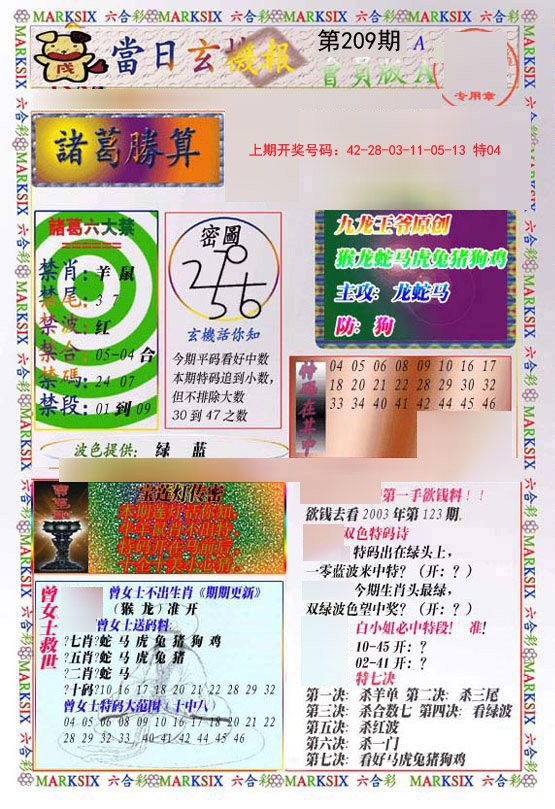 MARKSIX 六合彩 MARKSIX 六合彩 MARKSIX 六合彩 MARKSIX 六合彩 MARKSIX
當日玄機報
第209期 A
會員版A
专用章
諸葛勝算
上期开奖号码：42-28-03-11-05-13 特04
諸葛六大禁
禁肖：羊 鼠
禁尾：3 7
禁波：红
禁合：05-04 合
禁碼：24 07
禁段：01 到 09
密圖
玄機話你知
今期平码看好中数
本期特码追到小数，
但不排除大数
30 到 47 之数
九龙王爷原创
猴龙蛇马虎兔猪狗鸡
主攻：龙蛇马
防：狗
特码在其中
04 05 06 08 09 10 16 17
18 20 21 22 28 29 30 32
33 34 40 41 42 44 45 46
波色提供：绿 蓝
宝莲灯传密
第一手欲钱料！！
欲钱去看 2003 年第 123 期.
双色特码诗
特码出在绿头上，
一零蓝波来中特？（开：？）
今期生肖头最绿，
双绿波色望中奖？（开：？）
白小姐必中特段！ 准！
10-45 开：？
02-41 开：？
特七决
第一决：杀羊单 第二决：杀三尾
第三决：杀合数七 第四决：看绿波
第五决：杀红波
第六决：杀一门
第七决：看好马虎兔猪狗鸡
曾女士救世
曾女士不出生肖《期期更新》
（猴 龙）准 开
曾女士送码料:
?七肖?蛇 马 虎 兔 猪 狗 鸡
?五肖?蛇 马 虎 兔 猪
?二肖?蛇 马
?十码?10 16 17 18 20 21 22 28 29 32
曾女士特码大范围（十中八）
04 05 06 08 09 10 16 17 18 20 21 22
28 29 32 33 40 41 42 44 45 46
MARKSIX 六合彩 MARKSIX 六合彩 MARKSIX 六合彩 MARKSIX 六合彩 MARKSIX